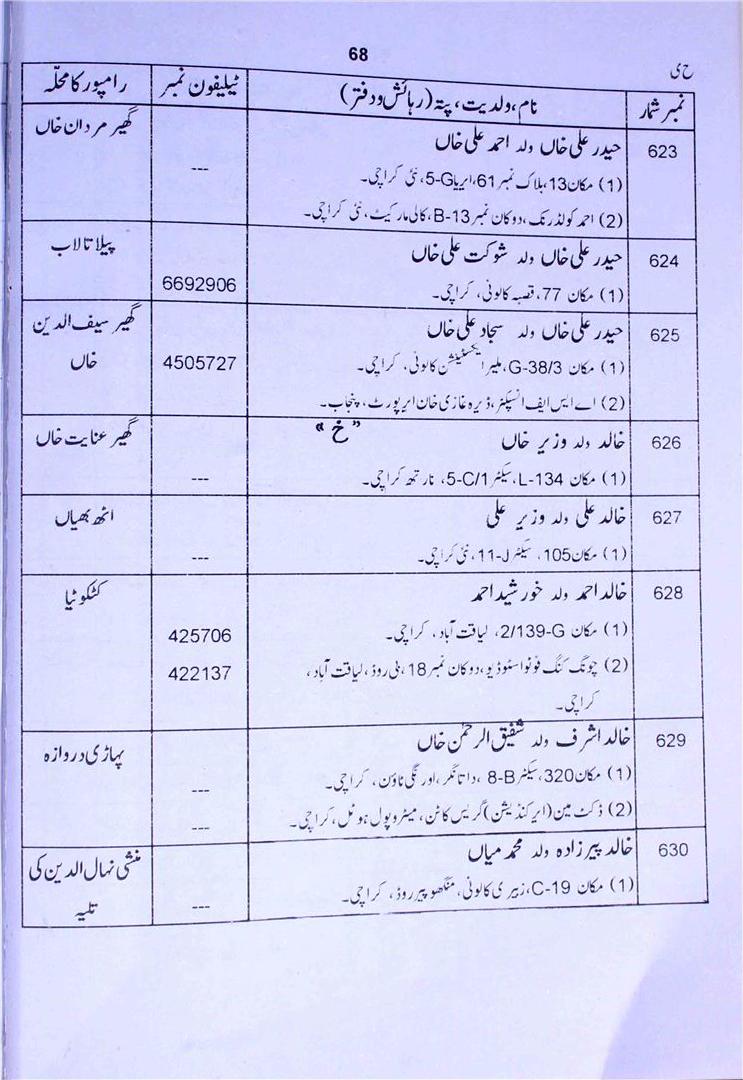 68
ح ی
نمبر شمار
نام، ولدیت، پتہ (رہائش و دفتر)
ٹیلیفون نمبر
رامپور کا محلّہ
623
حیدر علی خاں ولد احمد علی خاں
(1) مکان 13، بلاک نمبر 61، ایریا 5-G، نئی کراچی۔
(2) احمد کولڈرنک، دوکان نمبر B-13، کالی مارکیٹ، نئی کراچی۔
---
گھیر مردان خاں
624
حیدر علی خاں ولد شوکت علی خاں
(1) مکان 77، قصبہ کالونی، کراچی۔
6692906
پیلا تالاب
625
حیدر علی خاں ولد سجاد علی خاں
(1) مکان G-38/3، ملیر ایکسٹینشن کالونی، کراچی۔
(2) اے ایس ایف انسپکٹر، ڈیرہ غازی خان ایرپورٹ، پنجاب۔
4505727
گھیر سیف الدین
خاں
”خ“
626
خالد ولد وزیر خاں
(1) مکان L-134، سیکٹر 5-C/1، نارتھ کراچی۔
---
گھیر عنایت خاں
627
خالد علی ولد وزیر علی
(1) مکان 105، سیکٹر 11-J، نئی کراچی۔
---
اٹھ بھیاں
628
خالد احمد ولد خورشید احمد
(1) مکان 2/139-G، لیاقت آباد، کراچی۔
425706
(2) چونگ کنگ فوٹو اسٹوڈیو، دوکان نمبر 18، ملی روڈ، لیاقت آباد،
کراچی۔
422137
کٹکوئیا
629
خالد اشرف ولد شفیق الرحمٰن خاں
(1) مکان 320، سیکٹر 8-B، داتا نگر، اورنگی ٹاؤن، کراچی۔
---
(2) ڈکٹ مین (ایرکنڈیشن) گریس کاٹن، میٹروپول ہوٹل، کراچی۔
---
پہاڑی دروازہ
630
خالد پیرزادہ ولد محمد میاں
(1) مکان C-19، زبیری کالونی، منگھوپیر روڈ، کراچی۔
---
منشی نہال الدین کی
تلیہ